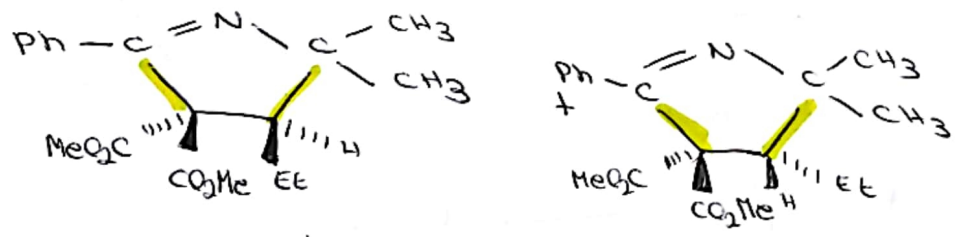 Ph - C = N C CH3
CH3
MeO2C
CO2Me Et
H
Ph - C = N C CH3
+
CH3
MeO2C
CO2Me H
Et